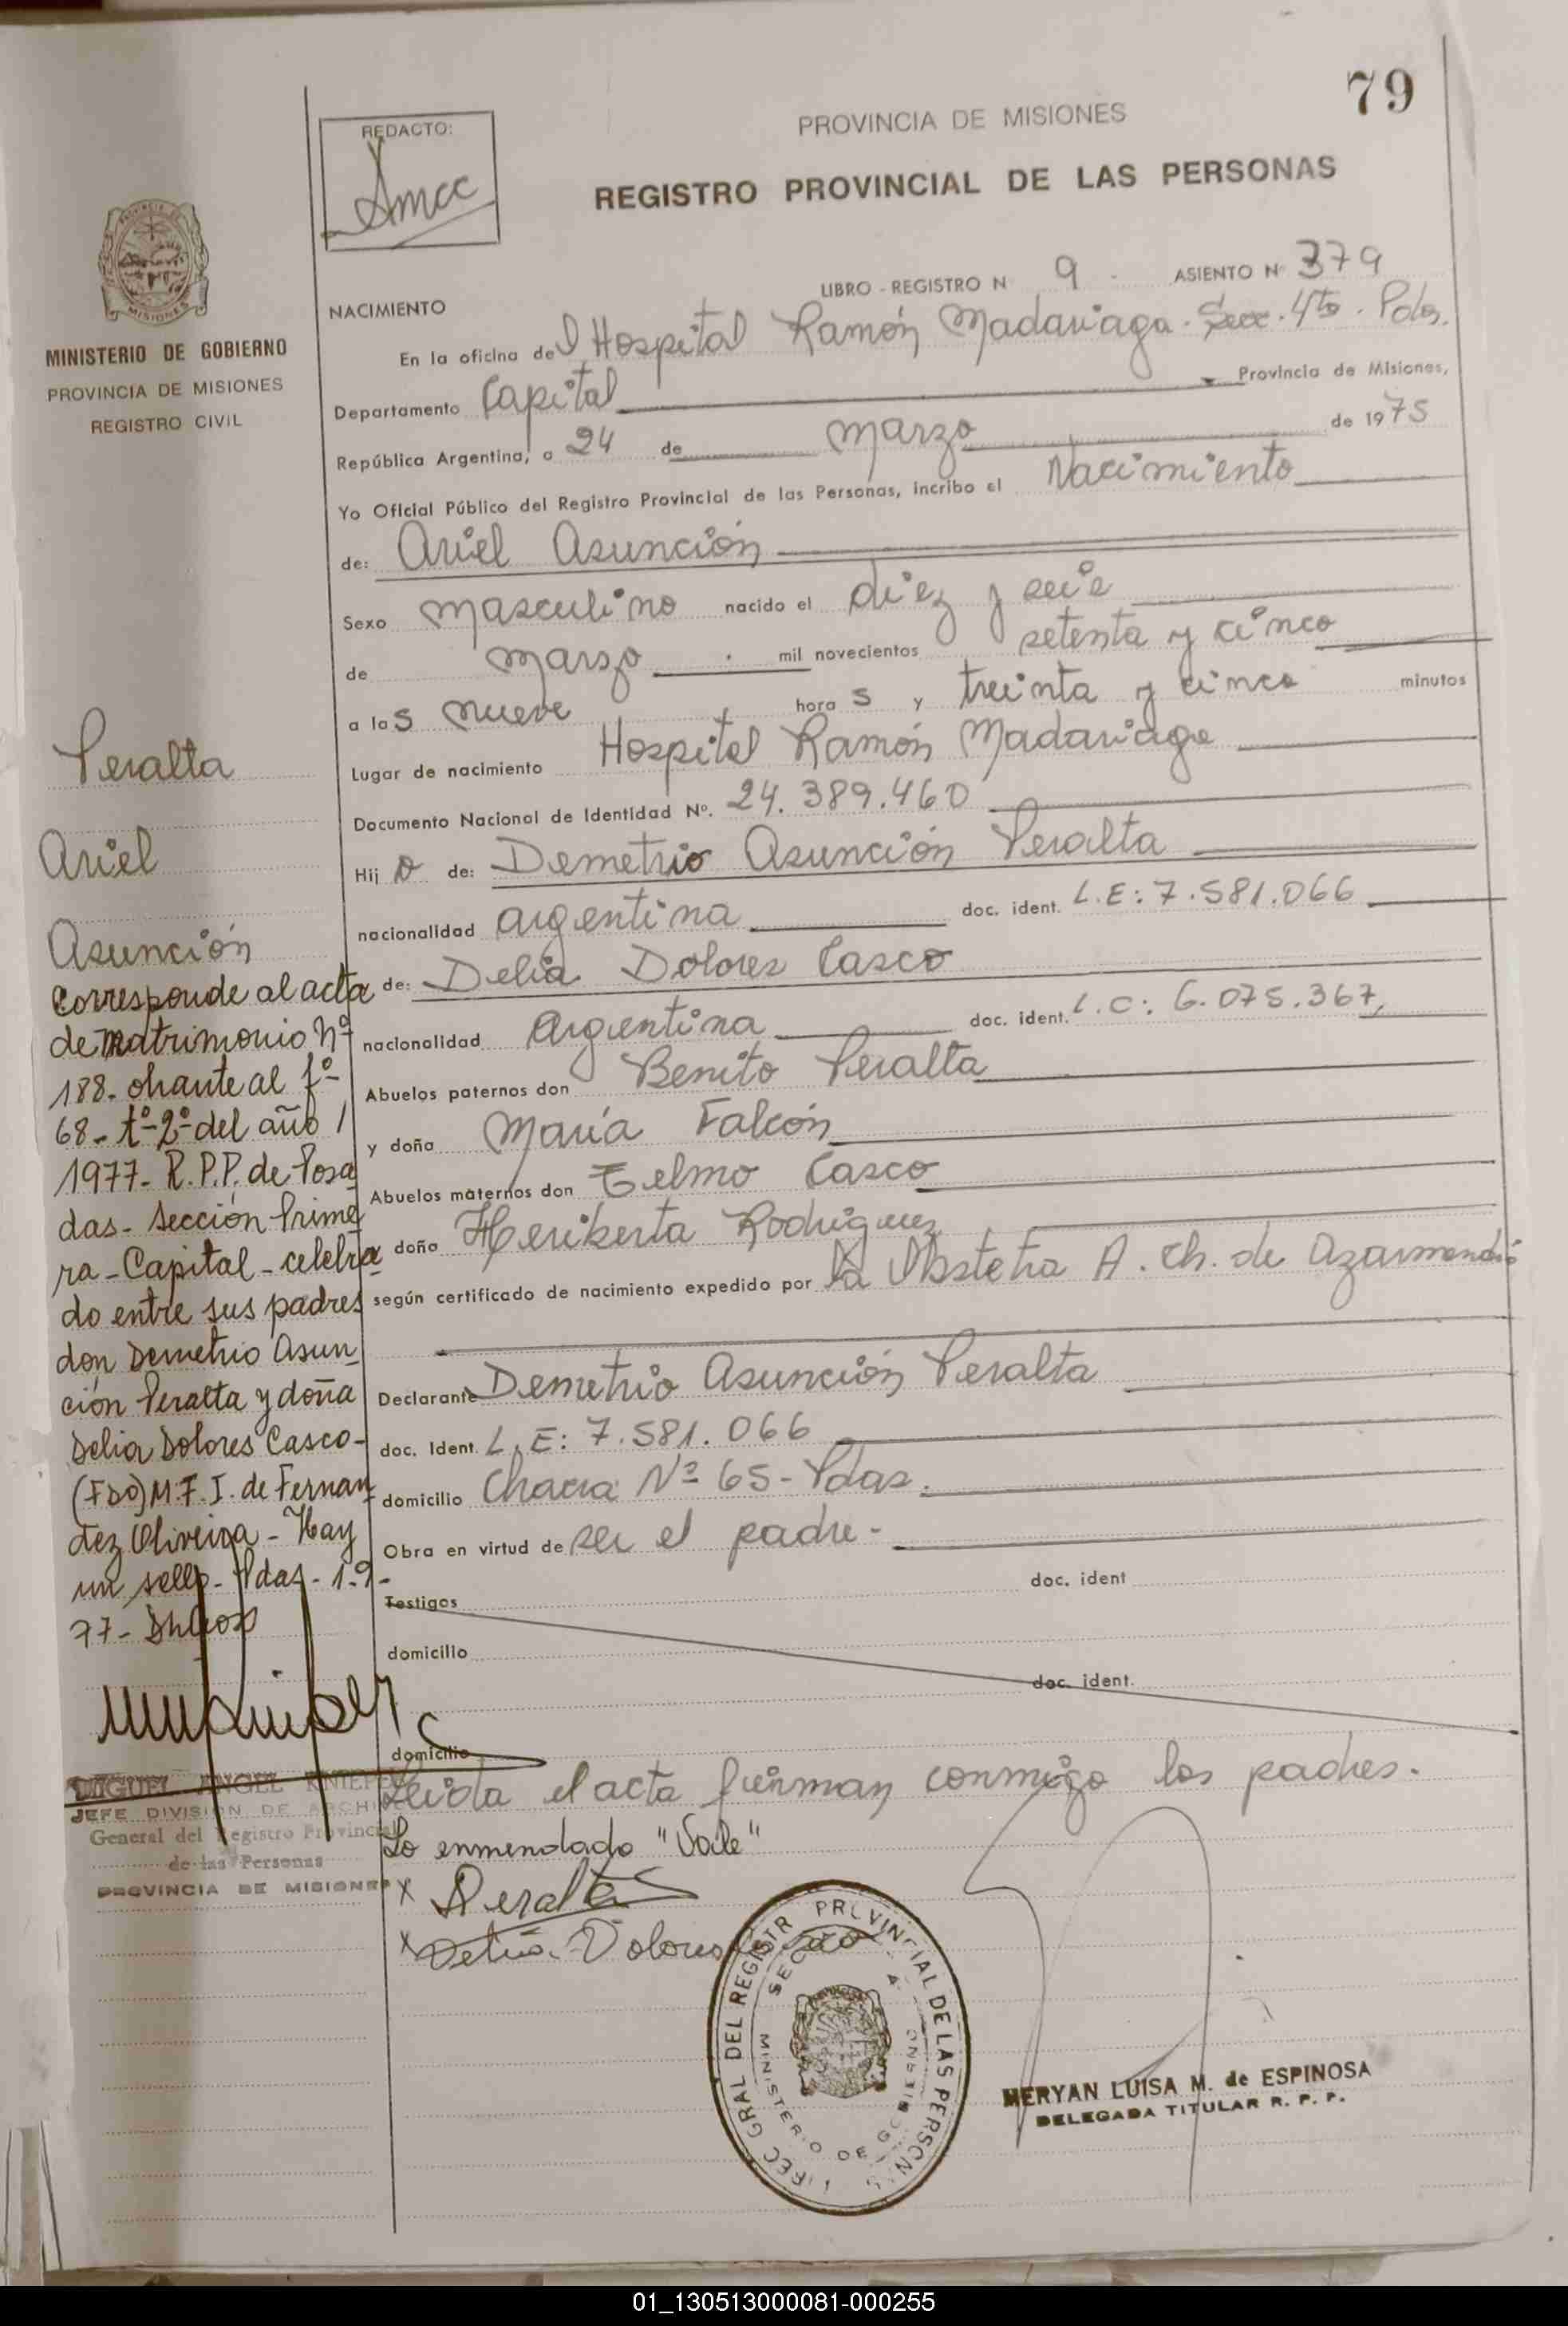 79
PROVINCIA DE MISIONES
REGISTRO PROVINCIAL DE LAS PERSONAS
REDACTO:
LIBRO - REGISTRO N 9 - ASIENTO Nº 379
NACIMIENTO
En la oficina del Hospital Ramón Madariaga - Secc. 4ta. Pdas.
Departamento Capital Provincia de Misiones,
República Argentina, a 24 de marzo de 1975
Yo Oficial Público del Registro Provincial de las Personas, incribo el Nacimiento
de: Ariel Asunción
Sexo masculino nacido el diez y seis
de marzo mil novecientos setenta y cinco
a las nueve horas y treinta y cinco minutos
Lugar de nacimiento Hospital Ramón Madariaga
Documento Nacional de Identidad Nº. 24.389.460
Hijo de: Demetrio Asunción Peralta
nacionalidad argentina doc. ident. L.E: 7.581.066
de: Delia Dolores Casco
nacionalidad Argentina doc. ident. L.C: 6.075.367,
Abuelos paternos don Benito Peralta
y doña María Falcón
Abuelos maternos don Telmo Casco
doña Heriberta Rodriguez
según certificado de nacimiento expedido por la Obstetra A. Ch. de
Declarante Demetrio Asunción Peralta
doc. Ident. L.E: 7.581.066
domicilio Chacra Nº 65 - Pdas.
Obra en virtud de ser el padre -
doc. ident
Testigos
domicilio
doc. ident.
domicilio
Leída el acta firman conmigo los padres.
Lo enmendado "Vale"
x Peralta
x Delia Dolores Casco
MERYAN LUISA M. de ESPINOSA
DELEGADA TITULAR R. P. P.
MINISTERIO DE GOBIERNO
PROVINCIA DE MISIONES
REGISTRO CIVIL
Peralta
Ariel
Asunción
Corresponde al acta
de matrimonio Nº
188 - obrante al fº
68 - tº 2º del año
1977 - R.P.P. de Posa
das - Sección Prime
ra - Capital - celebra
do entre sus padres
don Demetrio Asun
ción Peralta y doña
Delia Dolores Casco -
(FDO) M.F.I. de Fernan
dez Oliveira - Hay
un sello - Pdas - 1-9-
77 -
MIGUEL ANGEL
JEFE DIVISION DE ARCHIVO
General del Registro Provincial
de las Personas
PROVINCIA DE MISIONES
DIREC GRAL DEL REGISTR PROVINCIAL DE LAS PERSONAS
MINISTERIO DE GOBIERNO
01_130513000081-000255